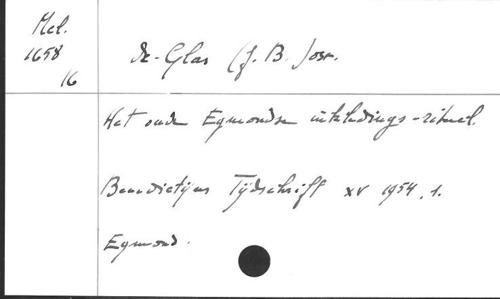 Mel.
1658
16
de Glas (J. B. Jos.
Het oude Egmondse inkledings-ritueel.
Benedictijns Tijdschrift XV 1954, 1.
Egmond.